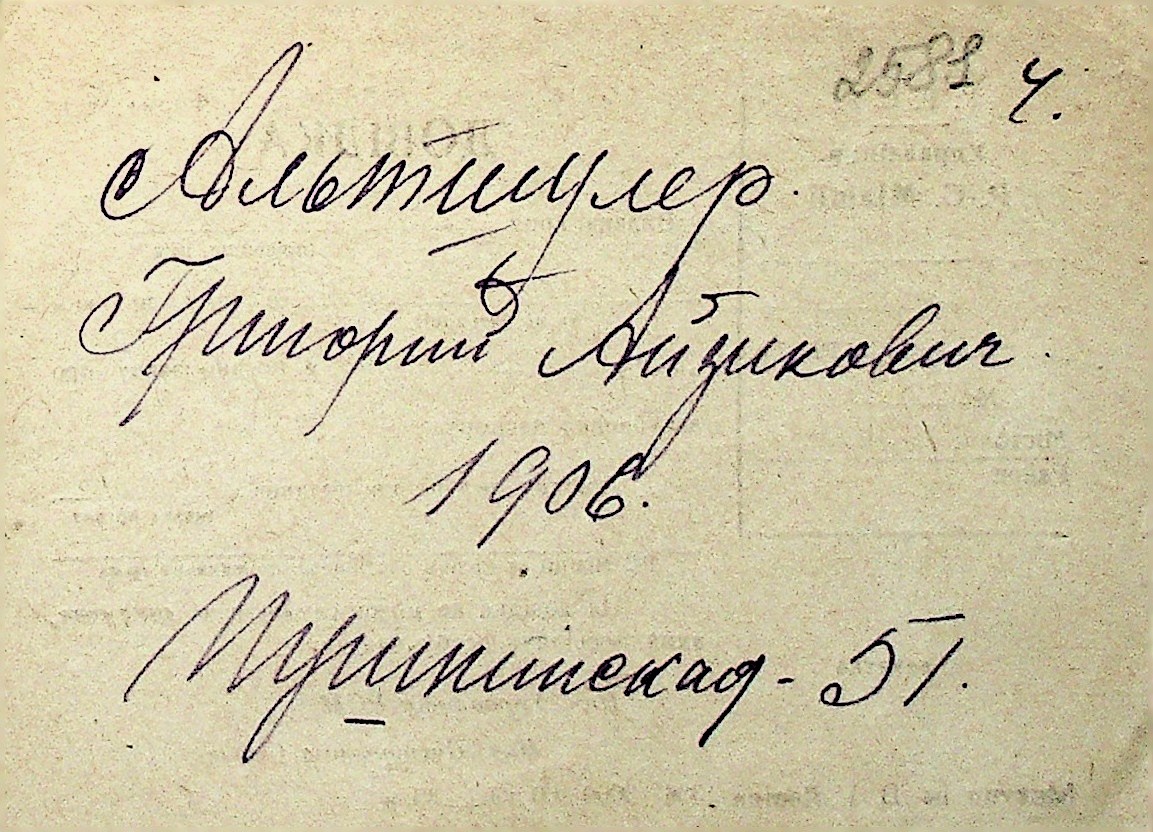 2581 ч.
Альтшулер
Григорий Айзикович
1906.
Пушкинская - 51.